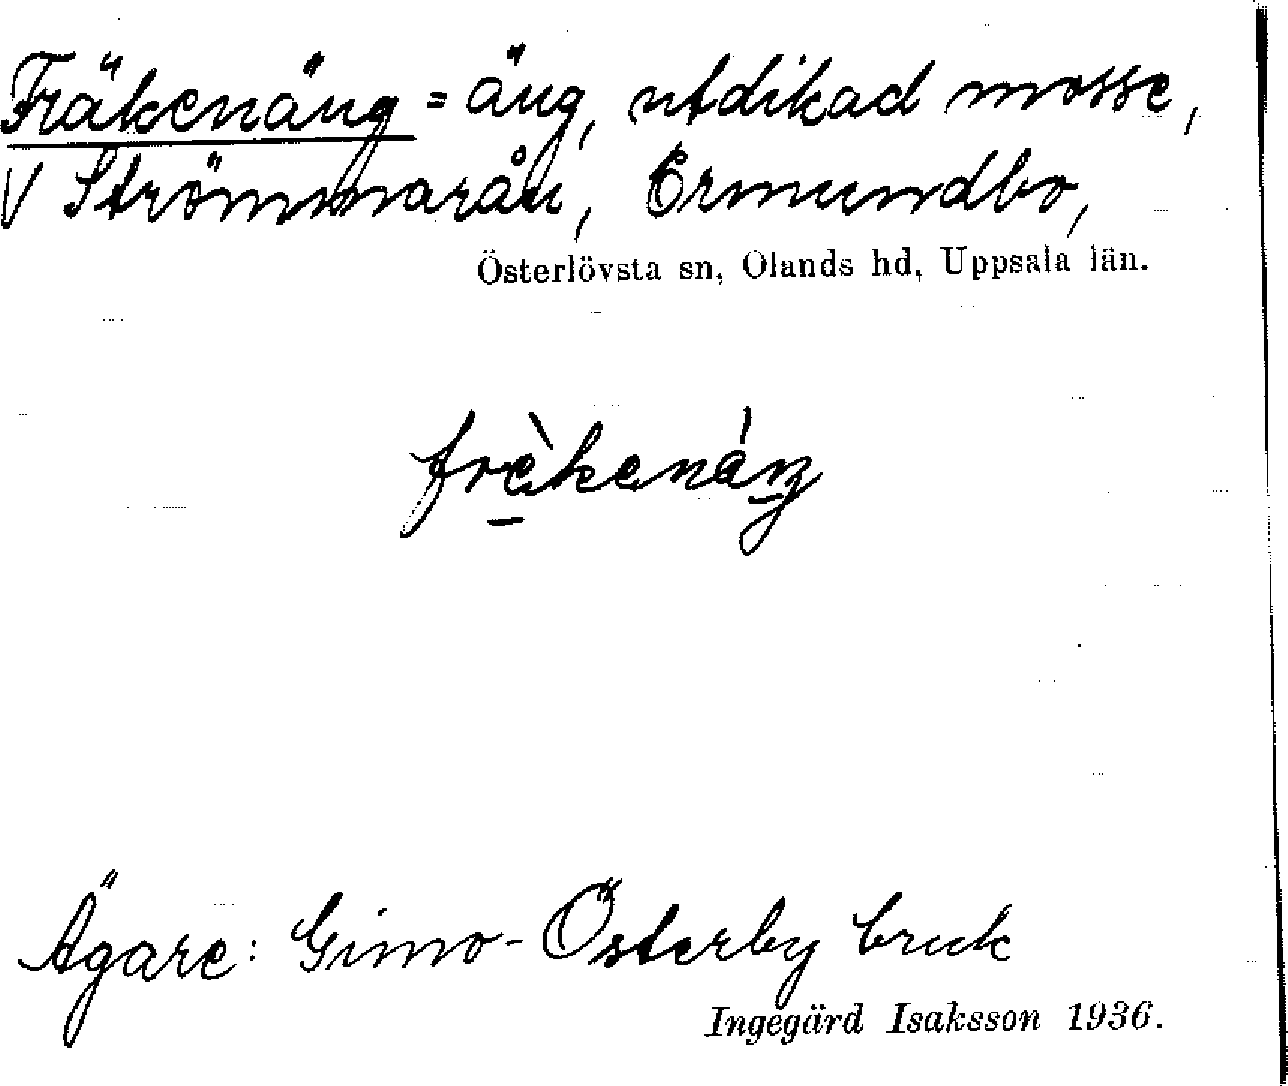 Fräkenäng = äng, utdikad mosse,
V Strömmarån, Ermundbo,
Österlövsta sn, Olands hd, Uppsala län.
frè̱kenáŋ
Ägare: Gimo-Österby bruk
Ingegärd Isaksson 1936.